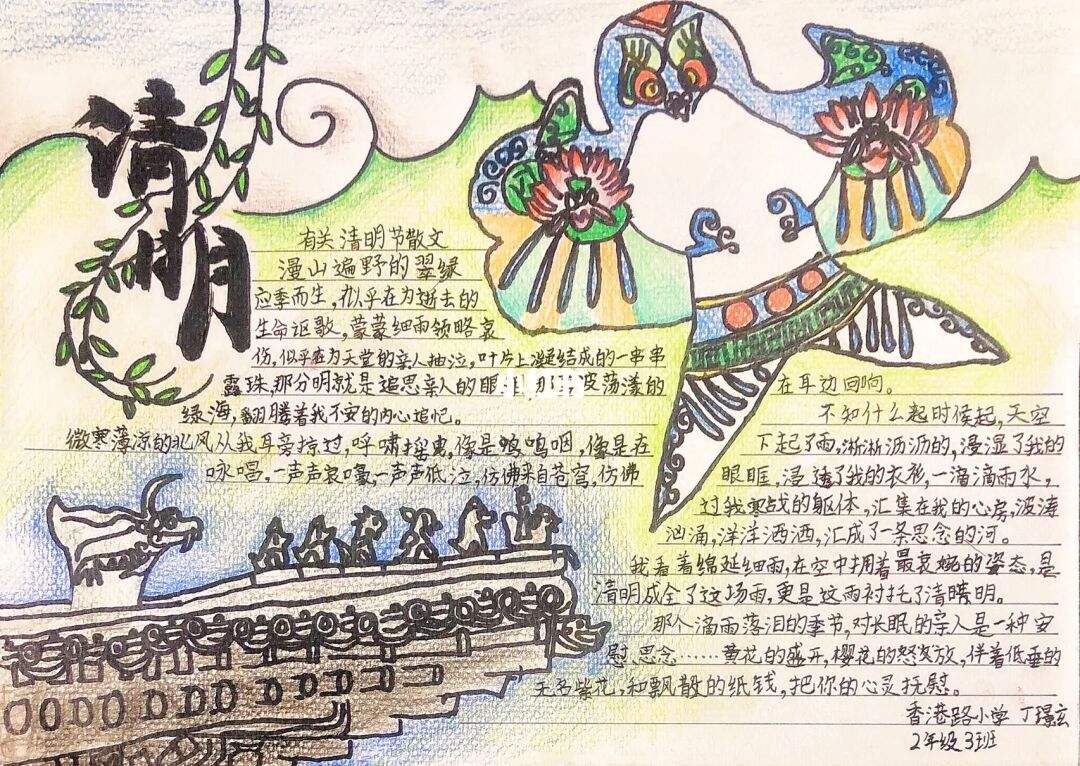 清明
有关清明节散文
漫山遍野的翠绿
应季而生，似乎在为逝去的
生命讴歌，蒙蒙细雨领略哀
伤，似乎在为天堂的亲人抽泣，叶片上凝结成的一串串
露珠，那分明就是追思亲人的眼 那 波荡漾的
绿海，翻腾着我不安的内心追忆。
微寒薄凉的北风从我耳旁掠过，呼啸摇曳，像是呜呜咽，像是在
咏唱，一声声哀嚎，一声声低泣，仿佛来自苍穹，仿佛
在耳边回响。
不知什么起时侯起，天空
下起了雨，淅淅沥沥的，漫湿了我的
眼眶，浸透了我的衣衫，一滴滴雨水，
过我寒战的躯体，汇集在我的心房，波涛
汹涌，洋洋洒洒，汇成了一条思念的河。
我看着绵延细雨，在空中拥着最哀婉的姿态，是
清明成全了这场雨，更是这雨衬托了清晴明。
那个滴雨落泪的季节，对长眠的亲人是一种安
慰，思念……黄花的盛开，樱花的怒放，伴着低垂的
无名紫花，和飘散的纸钱，把你的心灵抚慰。
香港路小学 丁璟玄
2年级3班